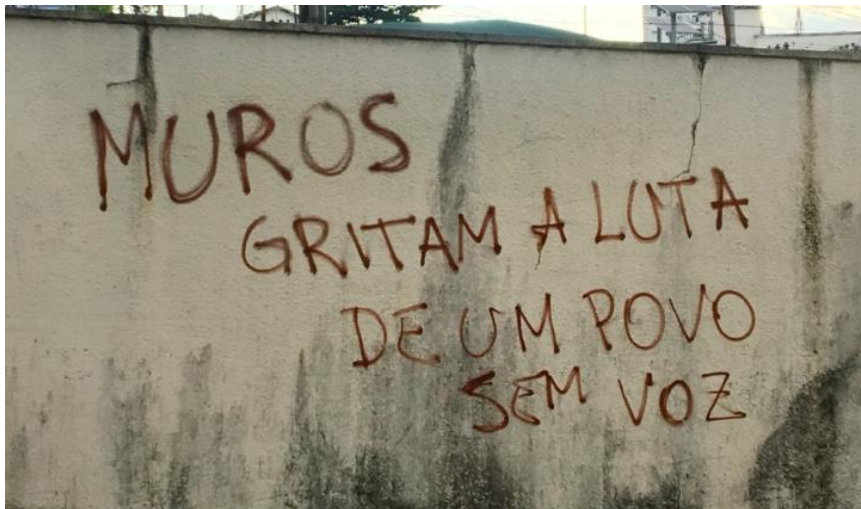 MUROS
GRITAM A LUTA
DE UM POVO
SEM VOZ